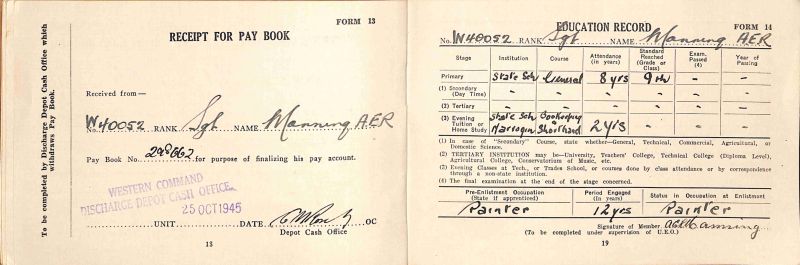 FORM 13
RECEIPT FOR PAY BOOK
To be completed by Discharge Depot Cash Office which
withdraws Pay Book.
Received from—
No. W40052 RANK Sgt NAME Manning AER
Pay Book No. 298662 for purpose of finalizing his pay account.
WESTERN COMMAND
DISCHARGE DEPOT CASH OFFICE
25 OCT 1945
UNIT DATE OC
Depot Cash Office
18
EDUCATION RECORD FORM 14
No. W40052 RANK Sgt NAME Manning AER
Stage Institution Course Attendance (in years) Standard Reached (Grade or Class) Exam. Passed (4) Year of Passing
Primary State Sch General 8 yrs 9th - -
(1) Secondary (Day Time) - - - - - -
(2) Tertiary - - - - - -
(3) Evening Tuition or Home Study State Sch Narrogin Bookeeping Shorthand 2 yrs - - -
(1) In case of "Secondary" Course, state whether—General, Technical, Commercial, Agricultural, or
Domestic Science.
(2) TERTIARY INSTITUTION may be—University, Teachers' College, Technical College (Diploma Level),
Agricultural College, Conservatorium of Music, etc.
(3) Evening Classes at Tech., or Trades School, or courses done by class attendance or by correspondence
through a non-state institution.
(4) The final examination at the end of the stage concerned.
Pre-Enlistment Occupation (State if apprenticed) Period Engaged (In years) Status in Occupation at Enlistment
Painter 12 yrs Painter
Signature of Member Manning
(To be completed under supervision of U.E.O.)
19